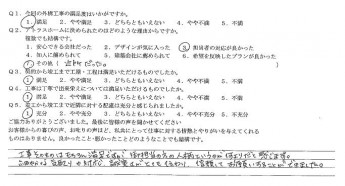 Q1．今回の外構工事の満足度はいかがですか。
①満足　2．やや満足　3．どちらともいえない　4．やや不満　5．不満
Q2．プラウスホームに決められたのはどのような理由からですか。
複数でも結構です。
1．安心できる会社だった　2．デザインが気に入った　③担当者の対応が良かった
4．知人に薦められて　5．価格が
6．希望を反映したプランが良かった
⑦その他（近所だった。）
Q3．契約から竣工まで工期・工程は満足いただけるものでしたか。
①満足　2．やや満足　3．どちらともいえない　4．やや不満　5．不満
Q4．工事は丁寧で出来栄えについては満足いただけるものでしたか。
①満足　2．やや満足　3．どちらともいえない　4．やや不満　5．不満
Q5．着工から竣工まで近隣に対する配慮は充分と感じられましたか。
①満足　2．やや満足　3．どちらともいえない　4．やや不満　5．不満
ご協力ありがとうございました。最後に皆様の声を聞かせてください
お客様からの喜びの声、お叱りの声ほど、私共にとって仕事に対する情熱とやりがいを与えてくれる
ものはありません。良かったこと・悪かったことどのようなことでも結構です。
工事そのものはもちろん満足ですが、御担当の方の人柄というのが何よりだと感じます。